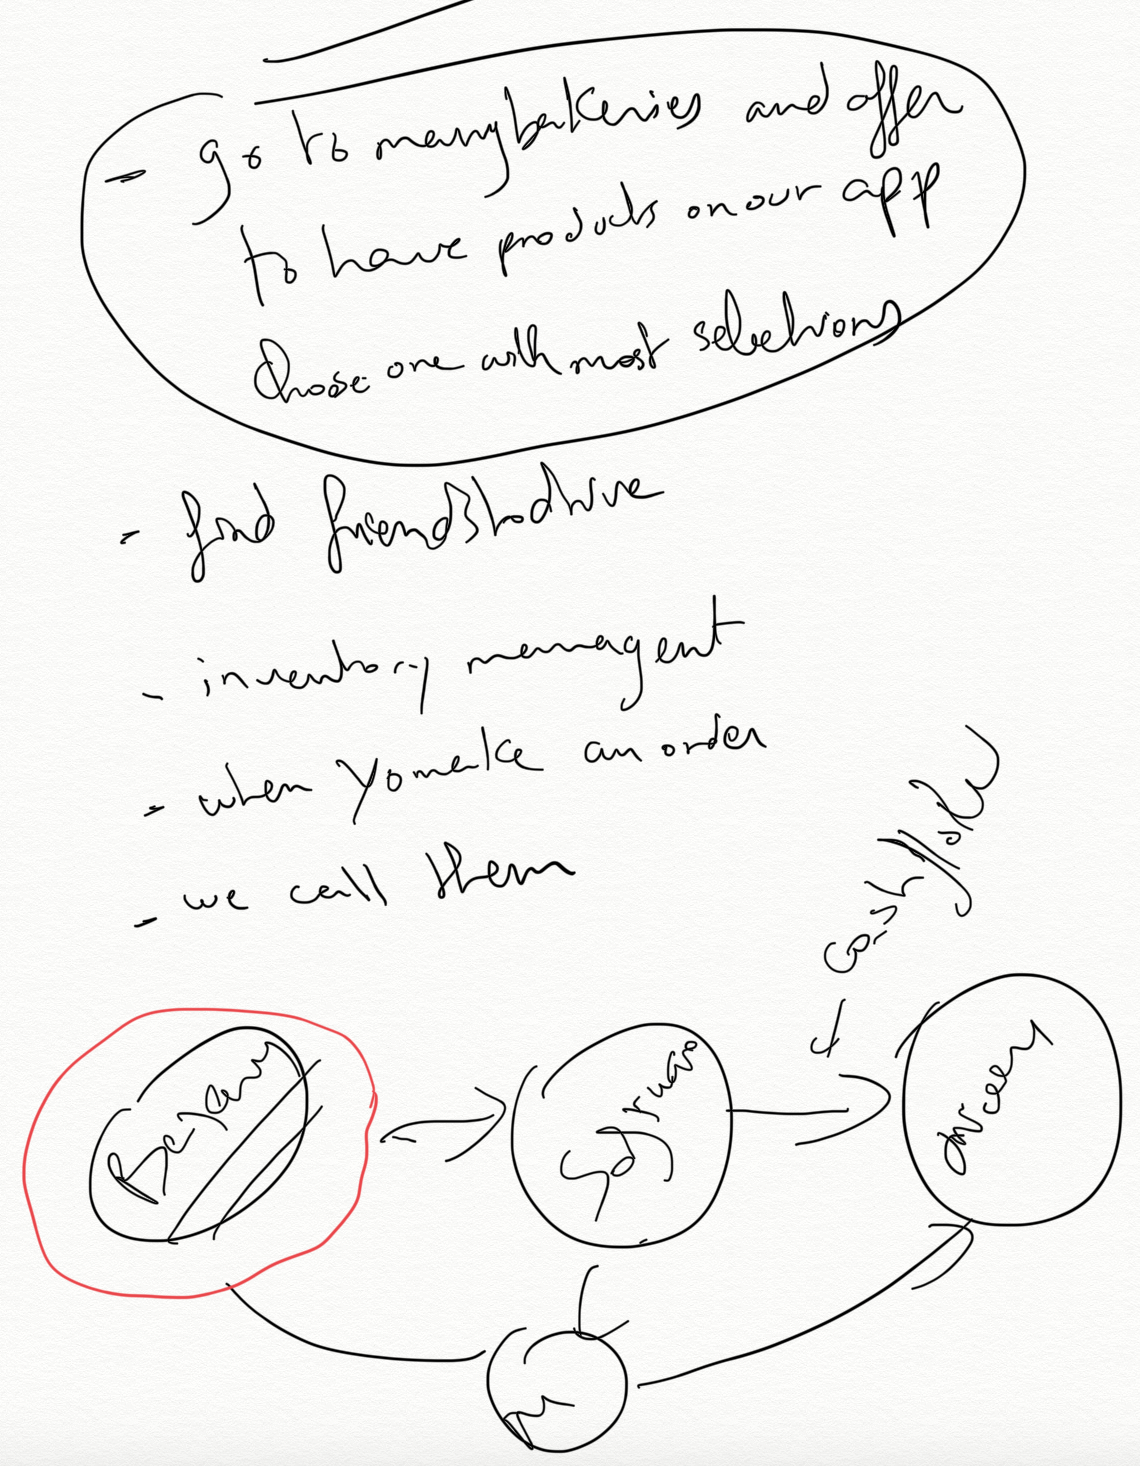 - go to many bakeries and offer
to have products on our app
Choose one with most selections
- find friends to drive
- inventory managent
- when yo make an order
- we call them
cash flow